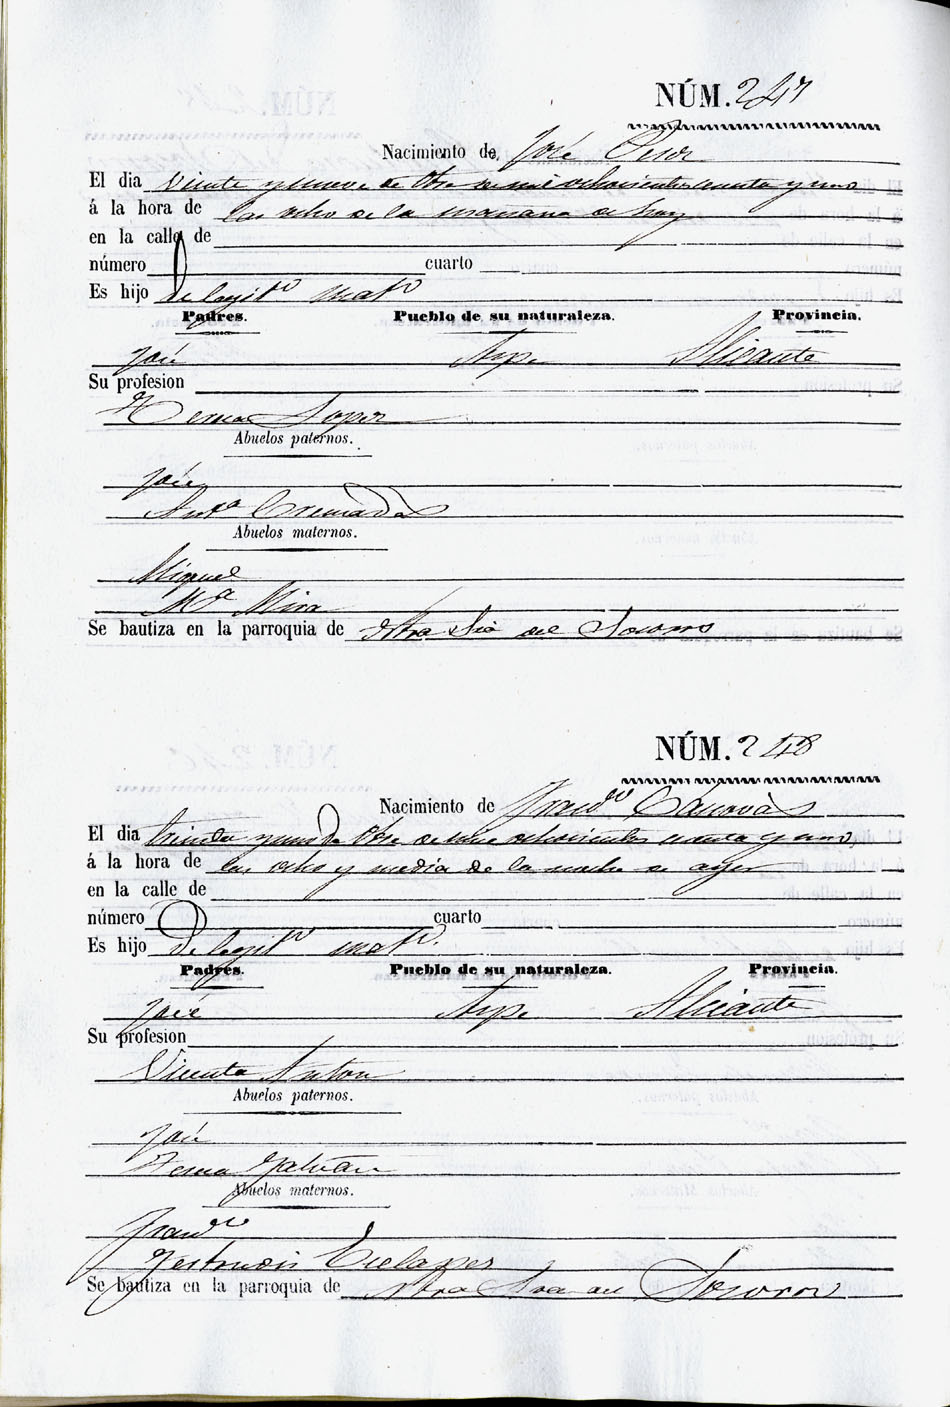 NÚM. 247
Nacimiento de, José
El dia veinte y nueve de Obre de mil ochocientos cuenta y uno
á la hora de las ocho de la mañana de hoy
en la calle de
número cuarto
Es hijo de legit.o mat.o
Padres. Pueblo de su naturaleza. Provincia.
José Aspe Alicante
Su profesion
Teresa Lopez
Abuelos paternos.
José
Ant.a Cremades
Abuelos maternos.
Miguel
M.a Mira
Se bautiza en la parroquia de Ntra Sra del Socorro
NÚM. 248
Nacimiento de Fran.co Cánovas
El dia treinta y uno de Obre de mil ochocientos cuenta y uno,
á la hora de las ocho y media de la noche de ayer
en la calle de
número cuarto
Es hijo de legit.o mat.o.
Padres. Pueblo de su naturaleza. Provincia.
José Aspe Alicante
Su profesion
Vicenta Anton
Abuelos paternos.
José
Teresa Galvañ
Abuelos maternos.
Fran.co
Gertrudis
Se bautiza en la parroquia de Ntra Sra del Socorro